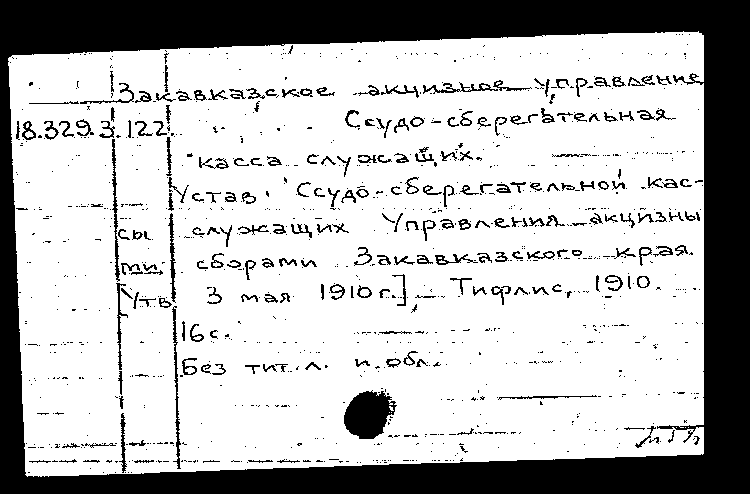 Закавказское акцизное управление
18.329.3.122. Ссудо-сберегательная
касса служащих.
Устав. Ссудо-сберегательной кас-
сы служащих Управления акцизны
ми. сборами Закавказского края.
[Утв. 3 мая 1910 г.]. Тифлис, 1910.
16 с.
Без тит. л. и обл.